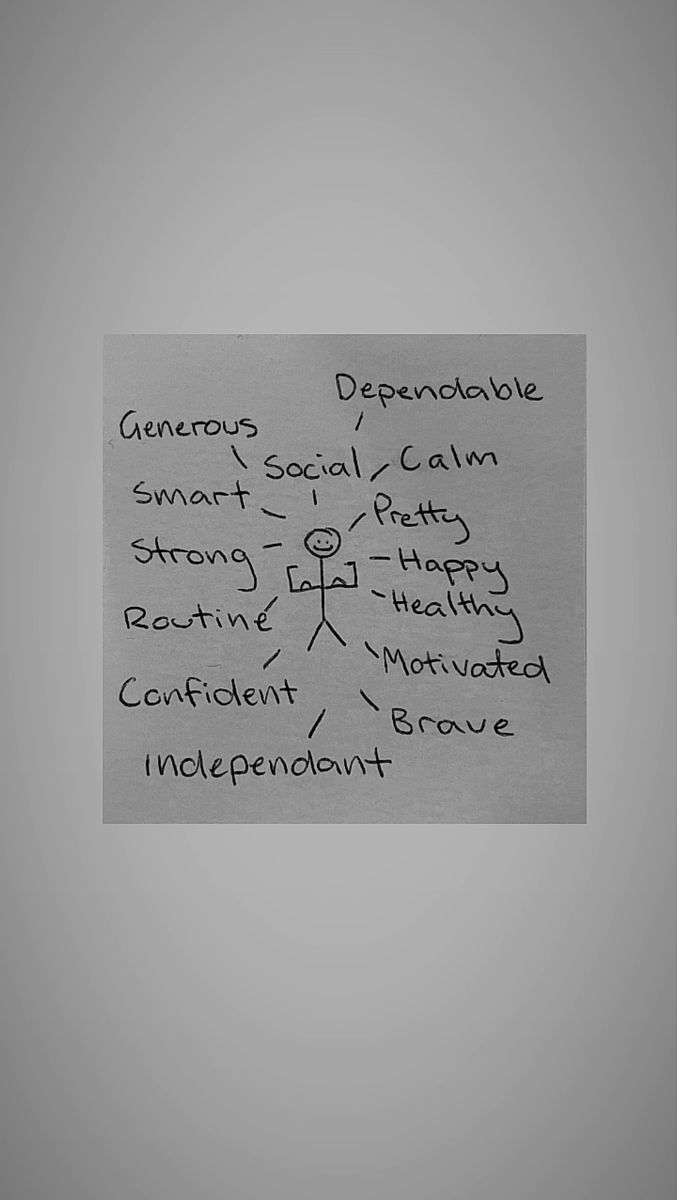 Dependable
Generous
Social
Calm
Smart
Pretty
Strong
Happy
Healthy
Routine
Motivated
Confident
Brave
Independant